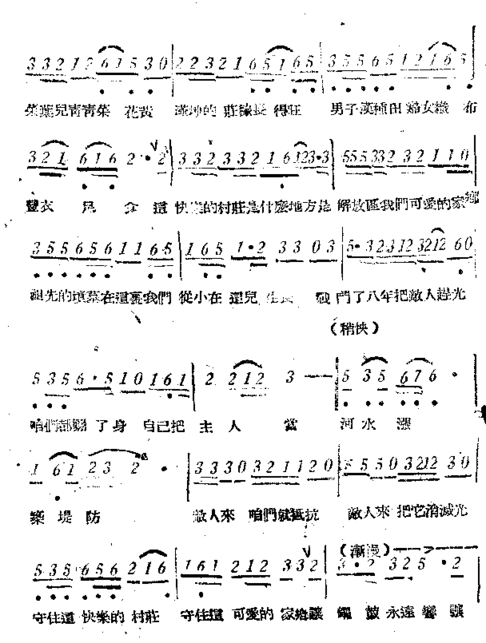 3 3 2 1 2 6 1 5 3 0 | 2 2 3 2 1 6 5 1 6 5 | 3 5 5 6 5 1 2 1 6 5
菜葉兒青青菜 花黃 滿坤的 莊稼長 得旺 男子漢種田 婦女織 布
3 2 1 6 1 6 2 · 2 | 3 3 2 3 3 2 1 6 1 2 3 · 3 | 5 5 5 3 3 2 3 2 1 1 0
豐衣 足 食 這 快樂的村莊是什麼地方是 解放區我們可愛的家鄉
3 5 5 5 6 5 6 1 1 6 5 | 1 6 5 1 · 2 3 3 0 3 | 5 · 3 2 3 1 2 3 2 1 2 6 0
祖先的墳墓在這裏我們 從小在 這兒 生長 戰 鬥了八年把敵人趕光
(稍快)
5 3 5 6 · 5 1 0 1 6 1 | 2 2 1 2 3 — | 5 3 5 6 7 6 ·
咱們都翻 了身 自己把 主 人 當 河 水 漲
1 6 1 2 3 2 · | 3 3 3 0 3 2 1 1 2 0 | 5 5 5 0 3 2 1 2 3 0
築 堤 防 敵人來 咱們就抵抗 敵人來 把它消滅光
(漸慢)
5 3 5 6 5 6 2 1 6 | 1 6 1 2 1 2 3 3 2 | 3 · 2 3 2 5 · 2
守住這 快樂的 村莊 守住這 可愛的 家鄉讓 鑼 鼓 永遠 響 強